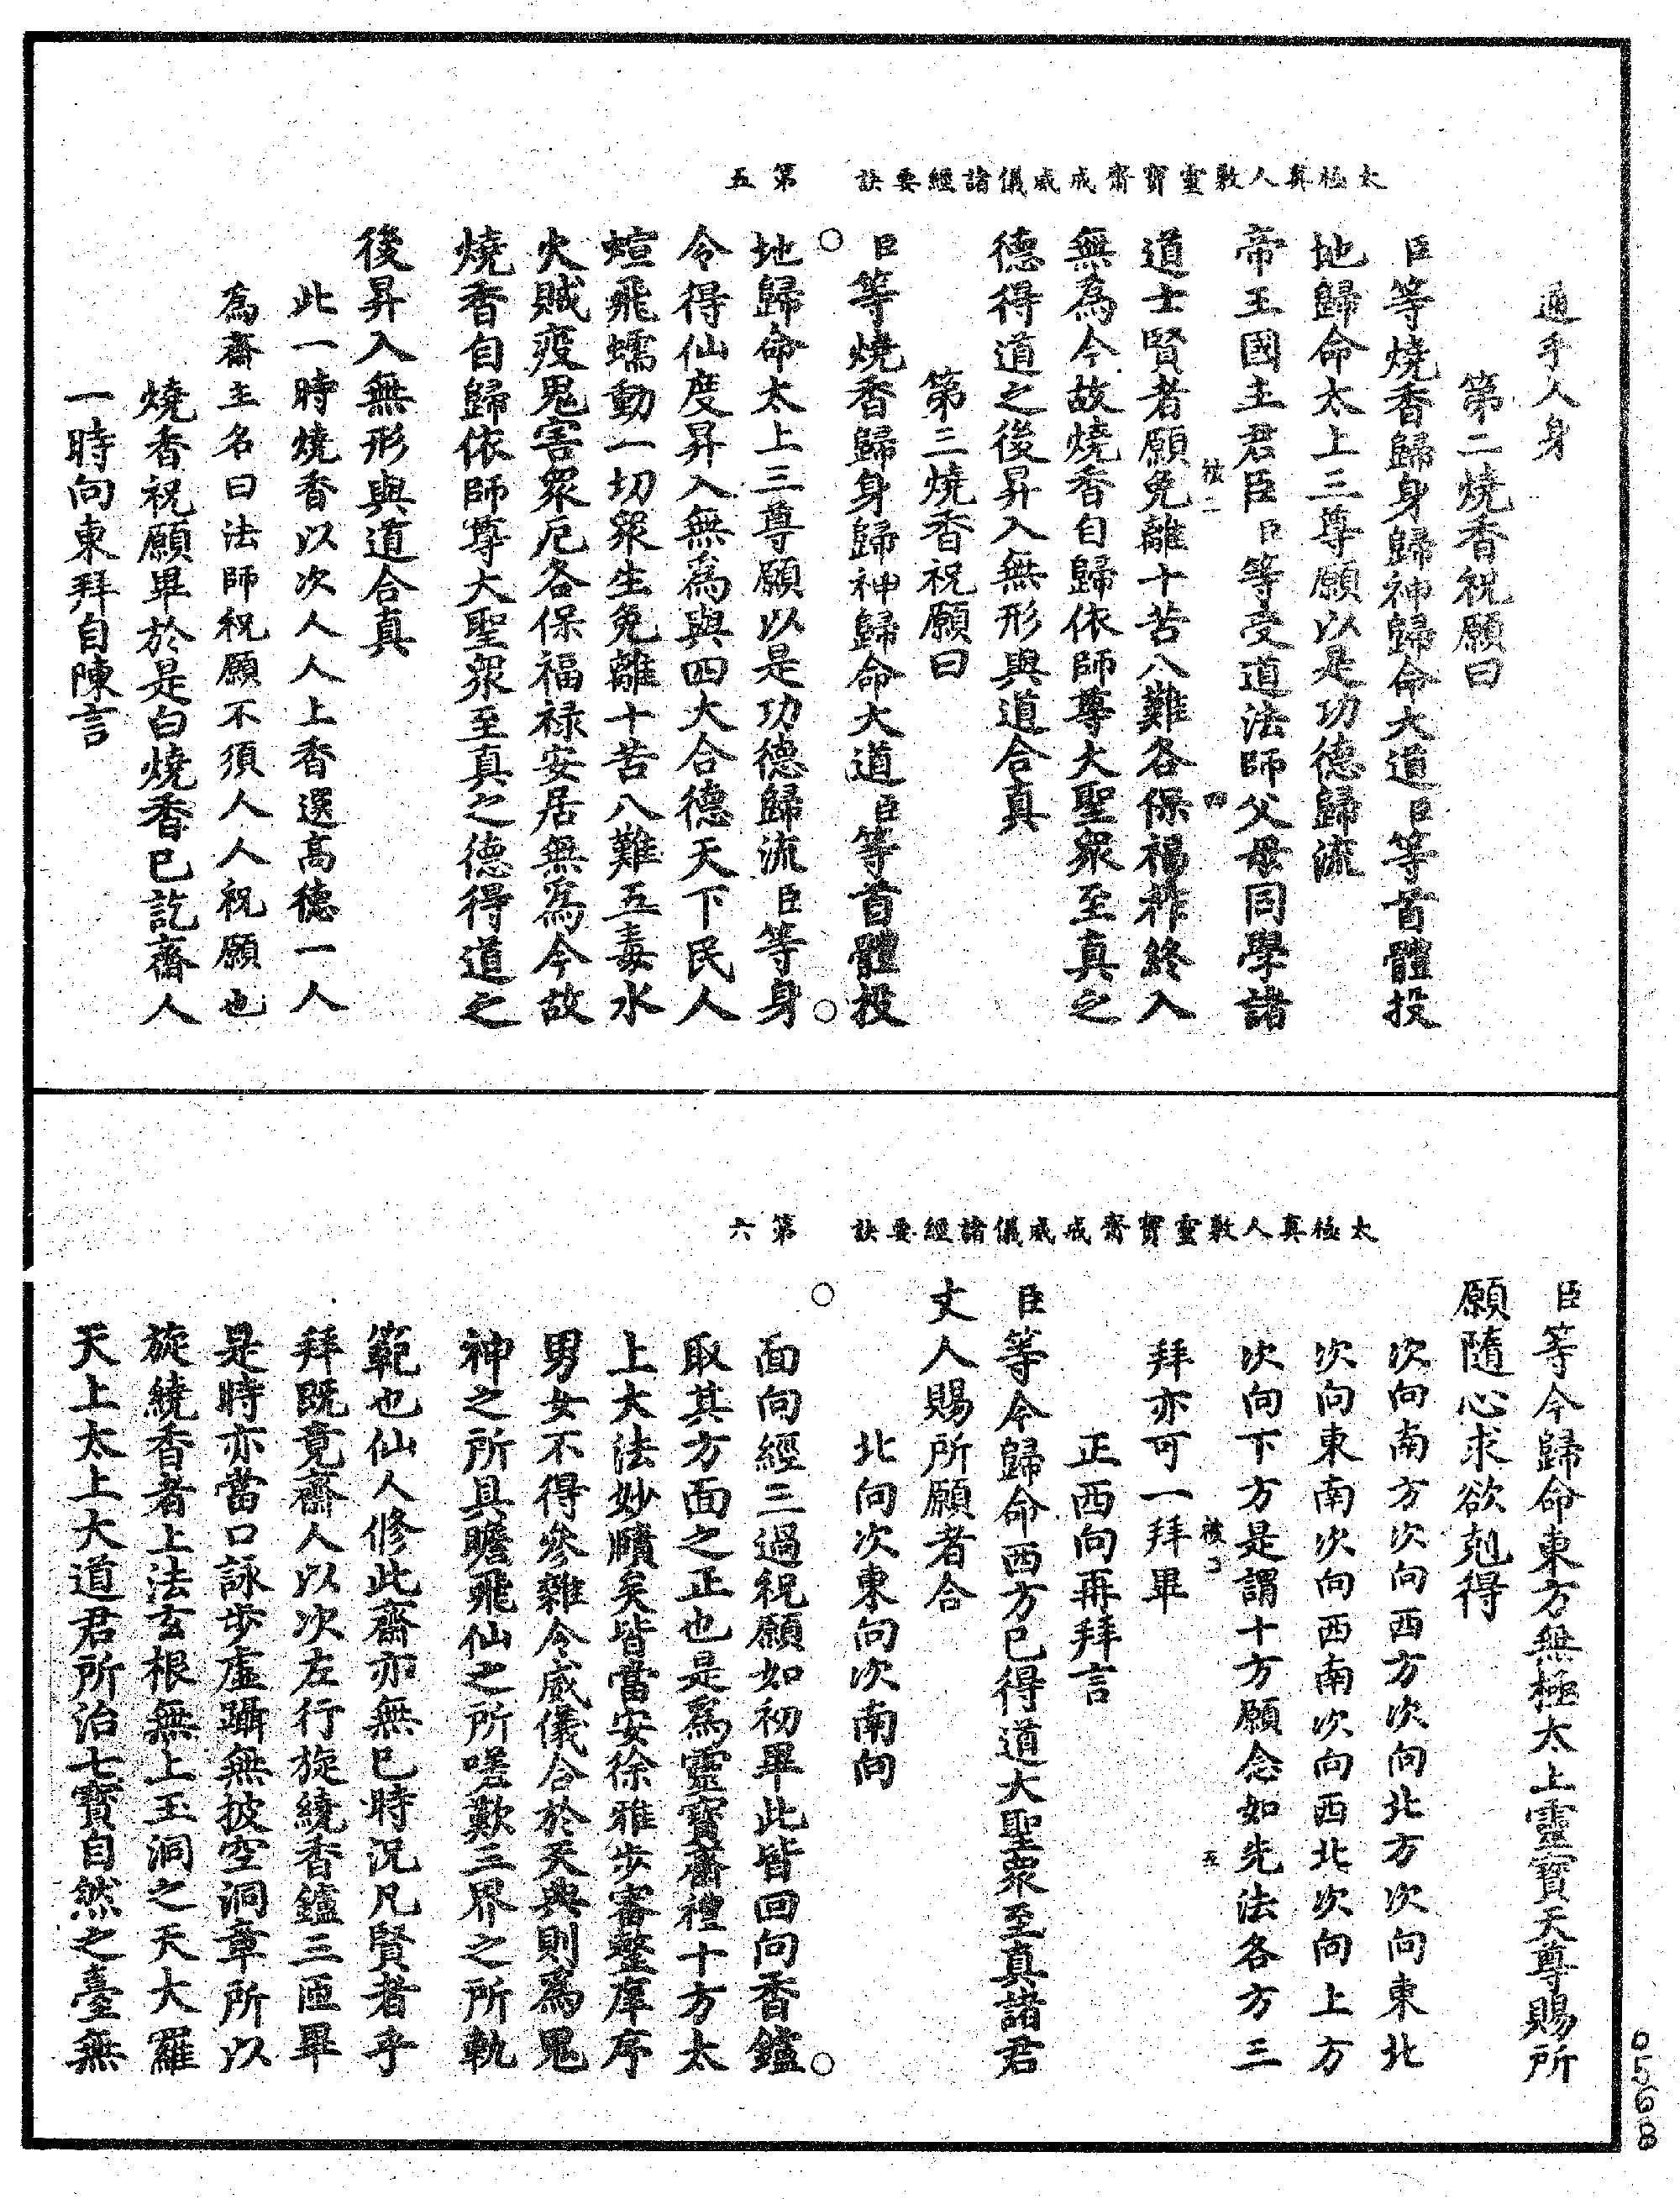 太極真人敷靈寶齋戒威儀諸經要訣　第五
通乎人身
第二燒香祝願曰
臣等燒香歸身歸神歸命大道臣等首體投
地歸命太上三尊願以是功德歸流
帝王國主君臣臣等受道法師父母同學諸
道士賢者願免離十苦八難各保福祚終入
無為今故燒香自歸依師尊大聖眾至真之
德得道之後昇入無形與道合真
第三燒香祝願曰
臣等燒香歸身歸神歸命大道臣等首體投
地歸命太上三尊願以是功德歸流臣等身
令得仙度昇入無為與四大合德天下民人
蝖飛蠕動一切眾生免離十苦八難五毒水
火賊疫鬼害眾厄各保福祿安居無為今故
燒香自歸依師尊大聖眾至真之德得道之
後昇入無形與道合真
此一時燒香以次人人上香選高德一人
為齋主名曰法師祝願不須人人祝願也
燒香祝願畢於是白燒香已訖齋人
一時向東拜自陳言
太極真人敷靈寶齋戒威儀諸經要訣　第六
臣等今歸命東方無極太上靈寶天尊賜所
願隨心求欲剋得
次向南方次向西方次向北方次向東北
次向東南次向西南次向西北次向上方
次向下方是謂十方願念如先法各方三
拜亦可一拜拜畢
五
正西向再拜言
臣等今歸命西方已得道大聖眾至真諸君
丈人賜所願者合
北向次東向次南向
面向經三過祝願如初畢此皆回向香鑪
取其方面之正也是為靈寶齋禮十方太
上大法妙賾矣皆當安徐雅步審整庠序
男女不得參雜令威儀合於天典則為鬼
神之所具瞻飛仙之所嗟歎三界之所軌
範也仙人修此齋亦無已時況凡賢者乎
拜既竟齋人以次左行旋繞香鑪三匝畢
是時亦當口詠步虛躡無披空洞章所以
旋繞香者上法玄根無上玉洞之天大羅
天上太上大道君所治七寶自然之臺無
0568